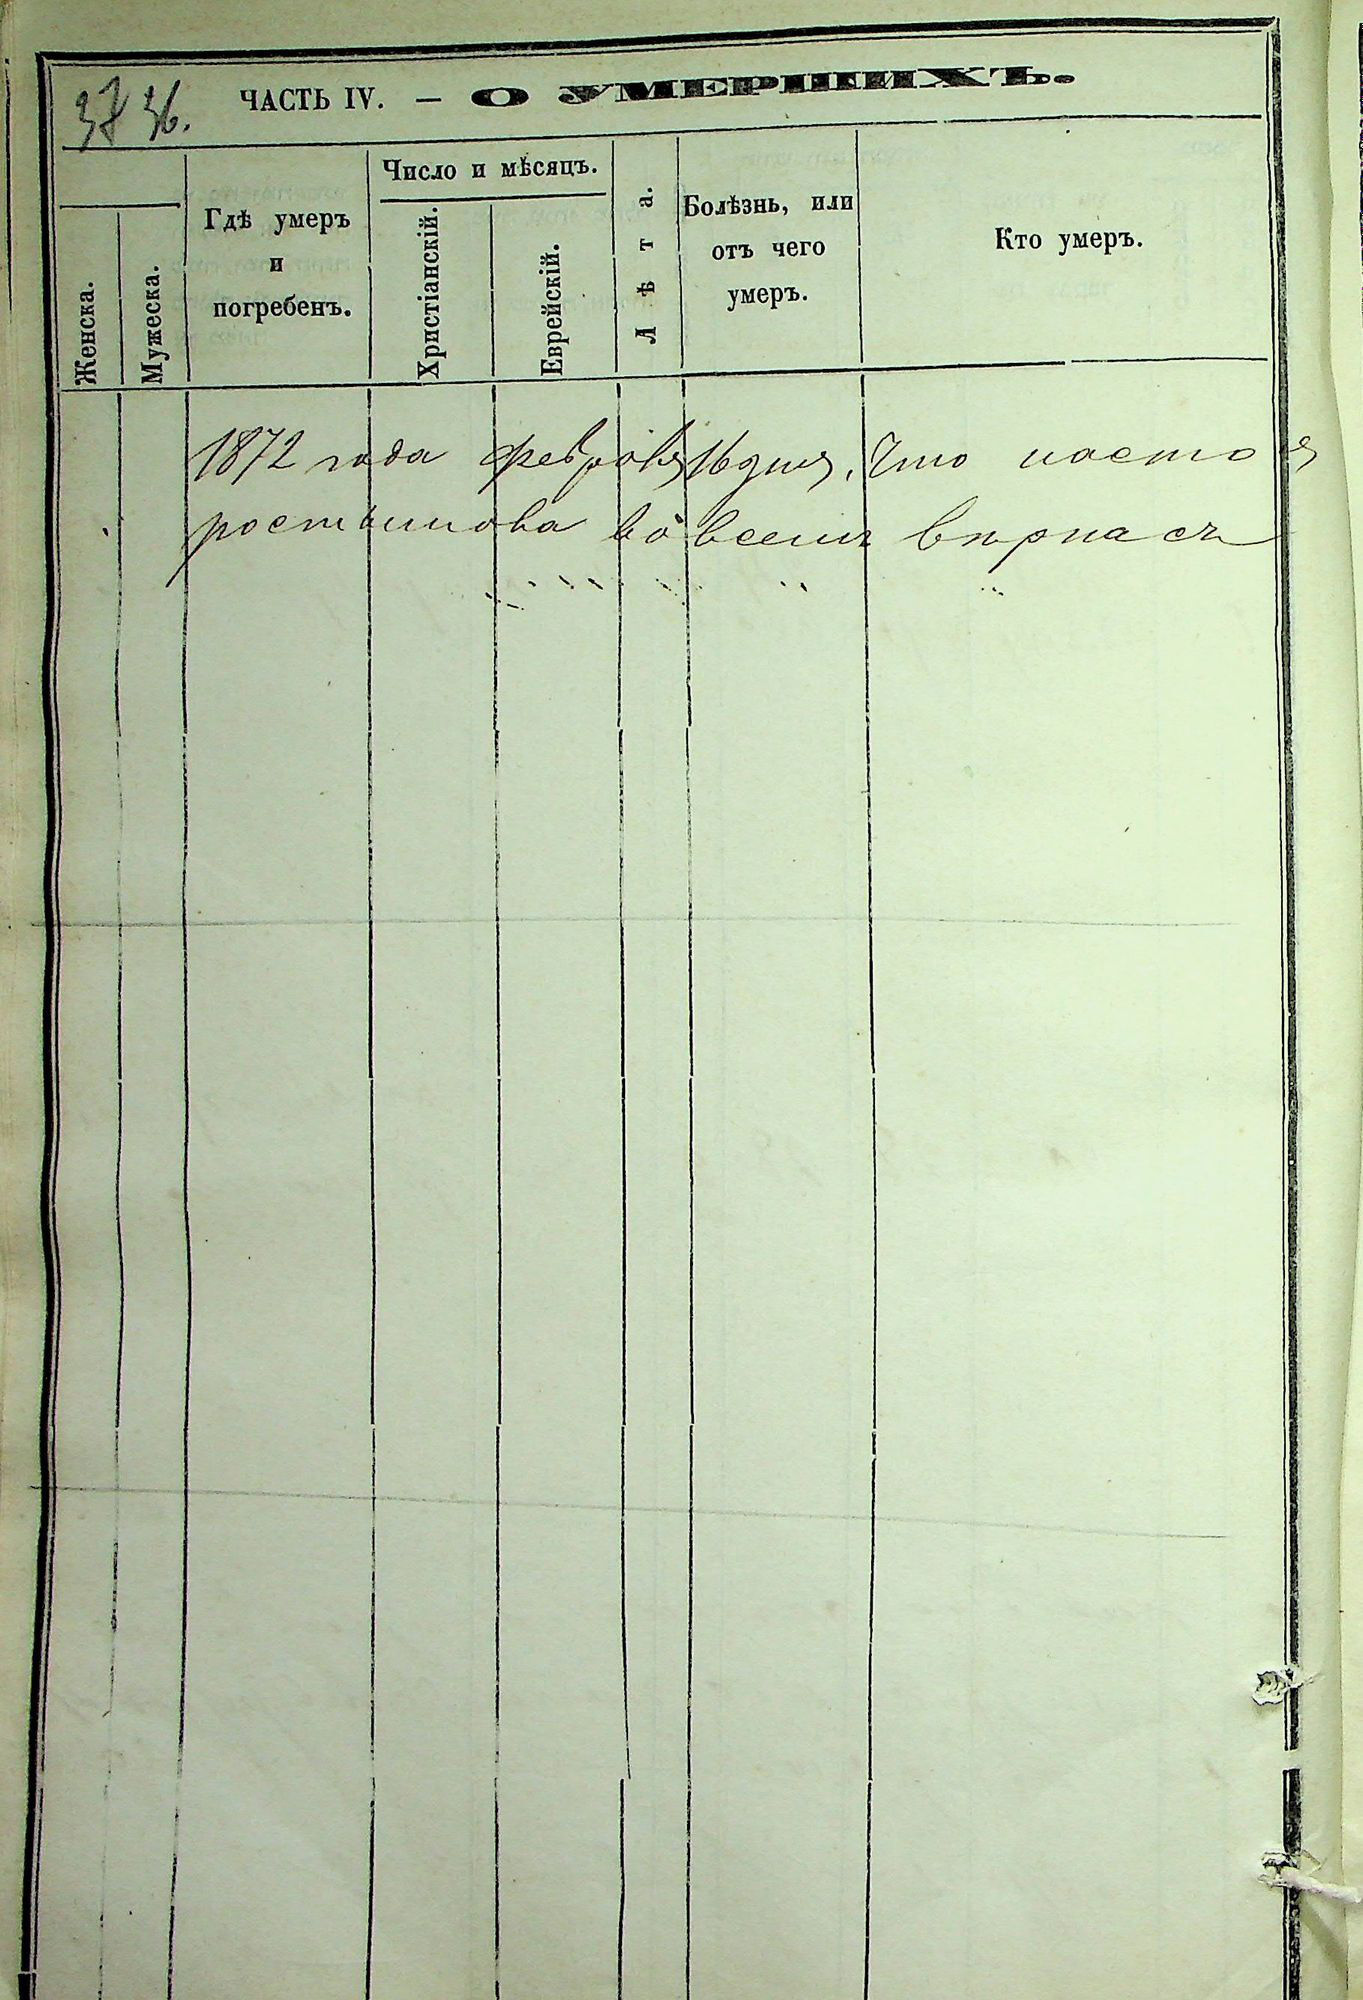 37 36.
ЧАСТЬ IV. — О УМЕРШИХЪ.
Женска.
Мужеска.
Гдѣ умеръ
и
погребенъ.
Число и мѣсяцъ.
Христіанскій.
Еврейскій.
Лѣта.
Болѣзнь, или
отъ чего
умеръ.
Кто умеръ.
1872 года февраля 16 дня, Что насто
во всемъ вѣрна съ